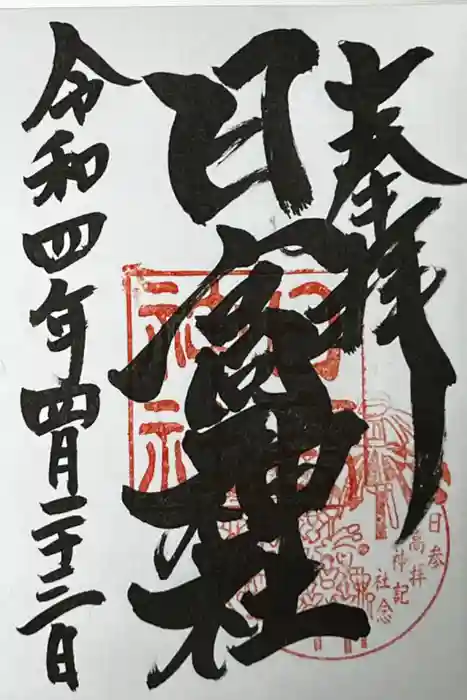 奉拝
日高神社
令和四年四月二十三日
日高神社
参拝記念
日高神社